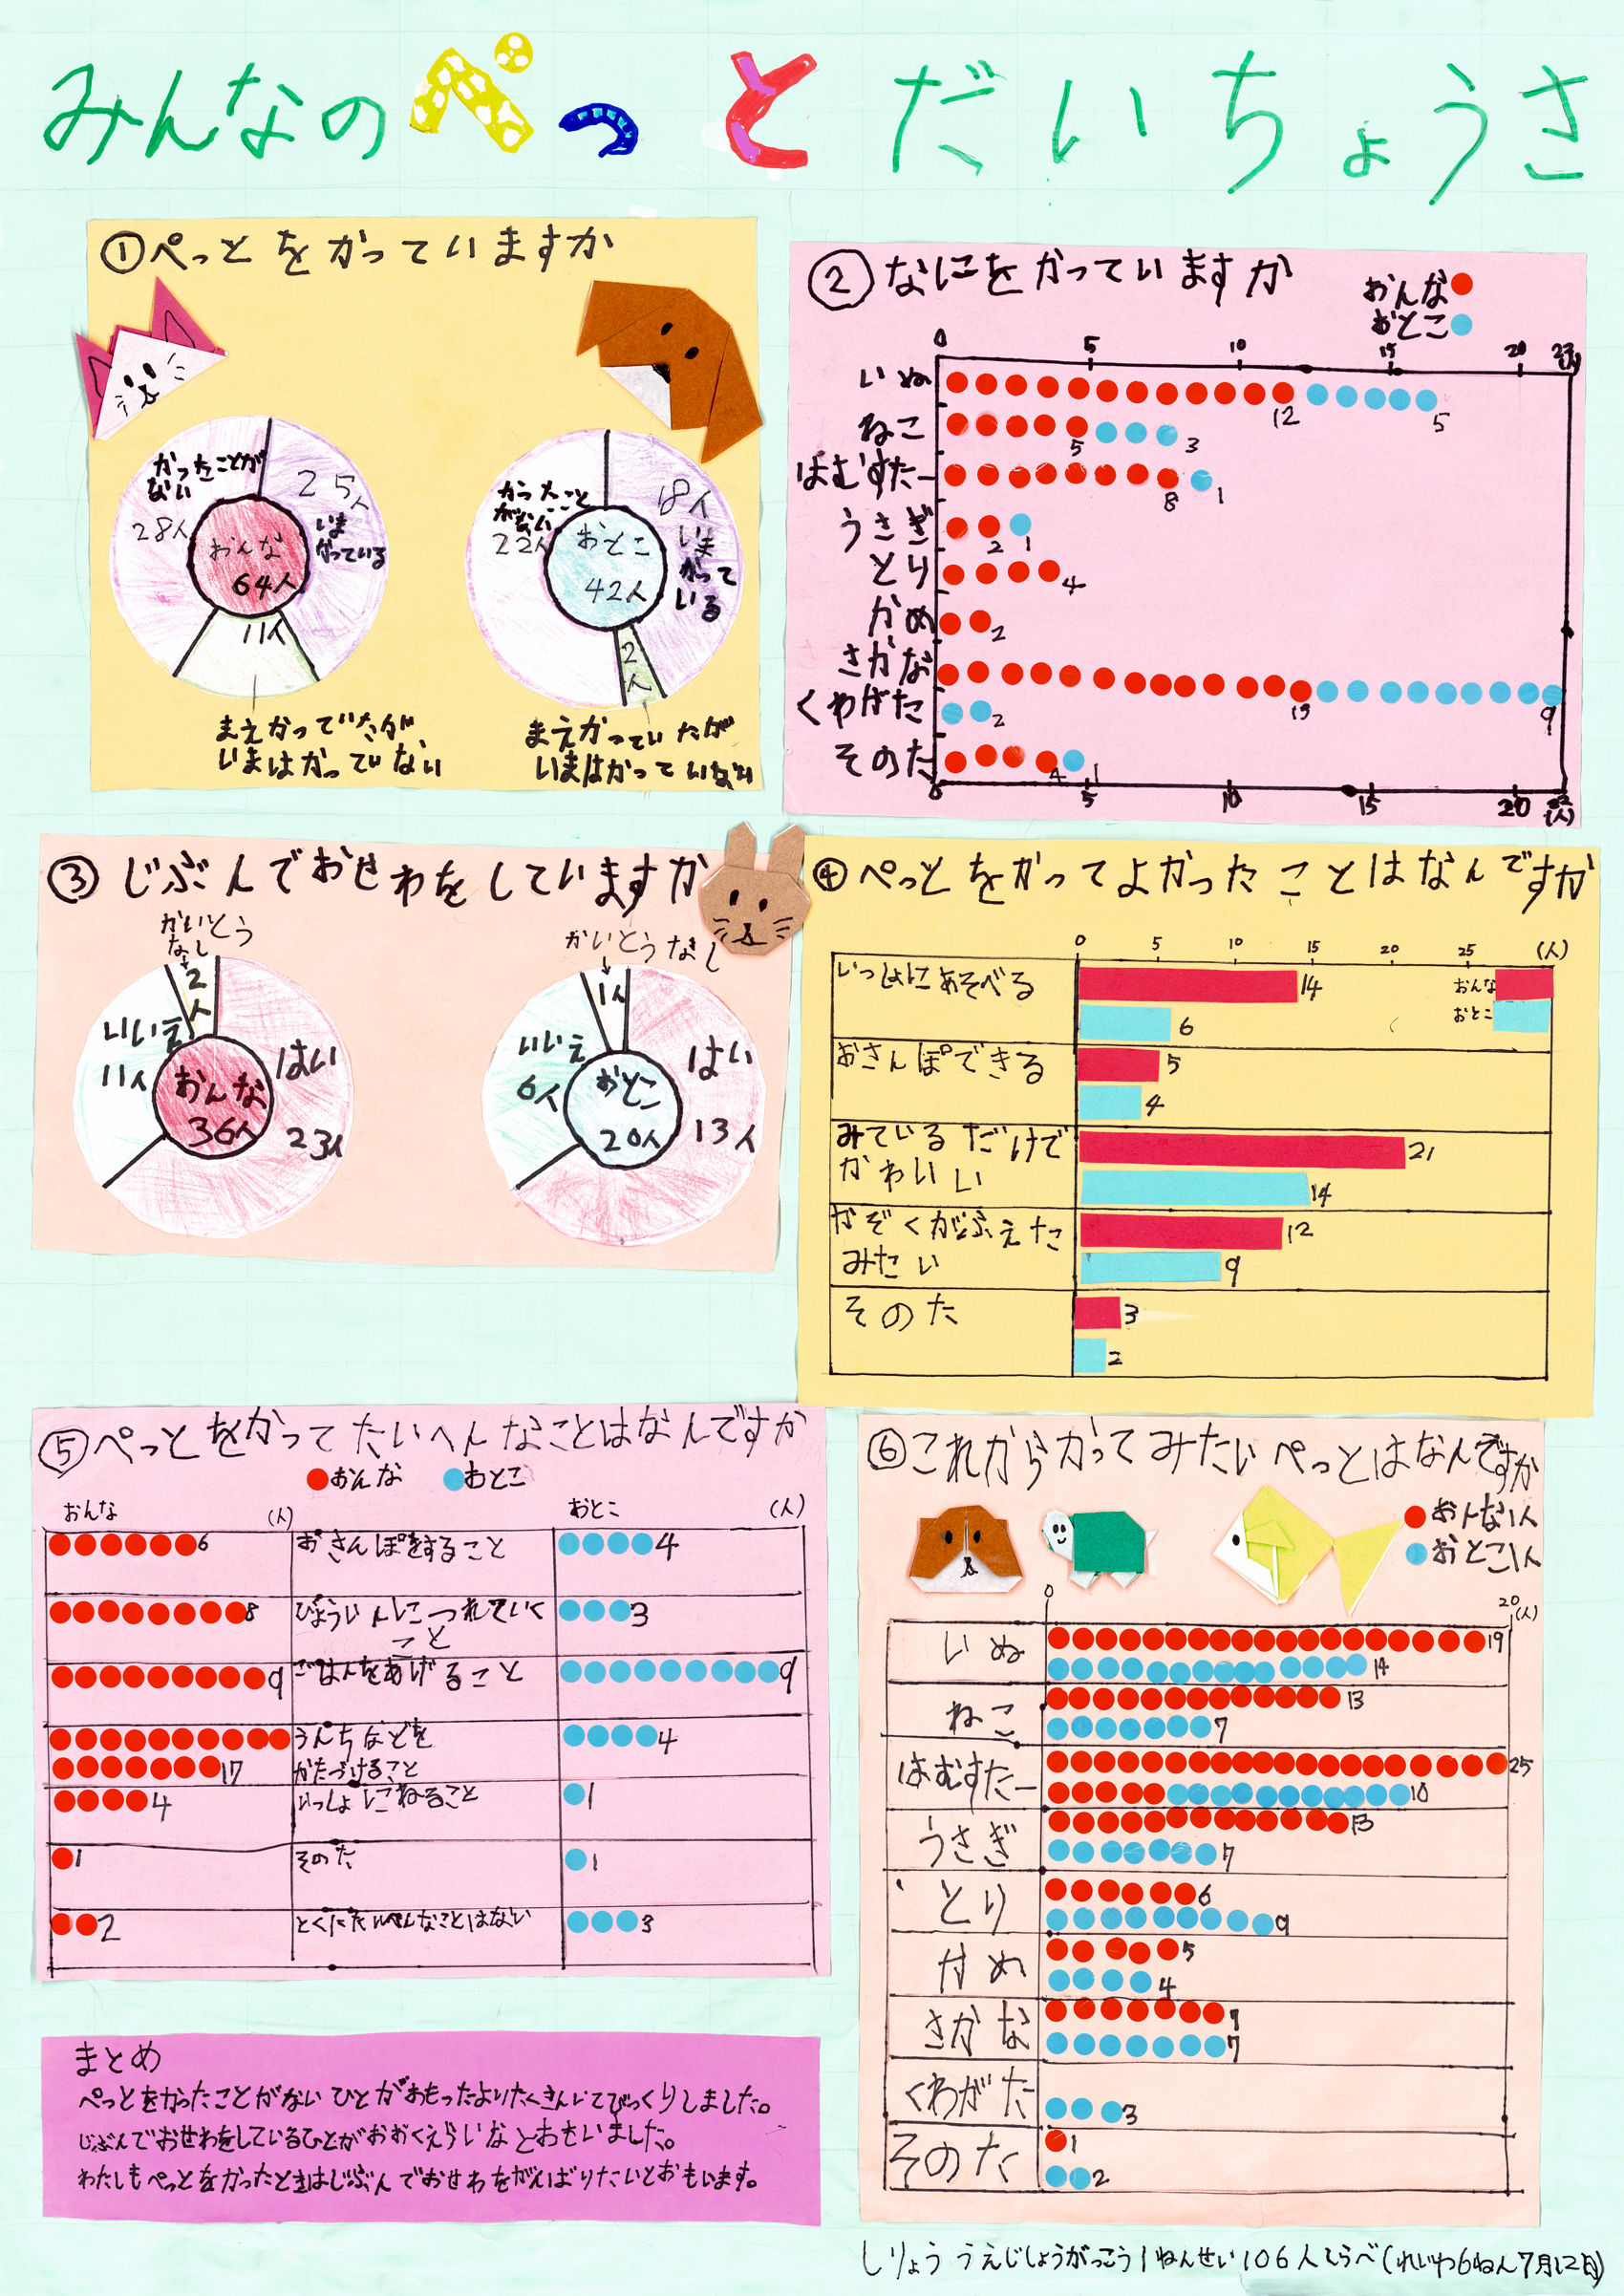 みんなのぺっとだいちょうさ
①ぺっとをかっていますか
かったことが
ない
28人
25人
いま
かっている
おんな
64人
11人
まえかっていたが
いまはかっていない
かったこと
がない
22人
18人
いま
かって
いる
おとこ
42人
2人
まえかっていたが
いまはかっていない
②なにをかっていますか
おんな
おとこ
0 5 10 15 20 22(人)
いぬ 12 5
ねこ 5 3
はむすたー 8 1
うさぎ 2 1
とり 4
かめ 2
さかな 13 9
くわがた 2
そのた 4 1
0 5 10 15 20 22(人)
③じぶんでおせわをしていますか
かいとう
なし
2人
いいえ
11人
おんな
36人
はい
23人
かいとうなし
1人
いいえ
6人
おとこ
20人
はい
13人
④ぺっとをかってよかったことはなんですか
0 5 10 15 20 25 (人)
おんな
おとこ
いっしょにあそべる 14
6
おさんぽできる 5
4
みているだけで
かわいい
21
14
かぞくがふえた
みたい
12
9
そのた 3
2
⑤ぺっとをかってたいへんなことはなんですか
おんな おとこ
おんな (人) おとこ (人)
6 おさんぽをすること 4
8 びょういんにつれていく
こと 3
9 ごはんをあげること 9
うんちなどを 4
17 かたづけること
4 いっしょにねること 1
1 そのた 1
2 とくにたいへんなことはない 3
⑥これからかってみたいぺっとはなんですか
おんな1人
おとこ1人
0 20(人)
いぬ 19
14
ねこ 13
7
はむすたー 25
10
うさぎ 13
7
とり 6
9
かめ 5
4
さかな 7
7
くわがた 3
そのた 1
2
まとめ
ぺっとをかったことがないひとがおもったよりたくさんいてびっくりしました。
じぶんでおせわをしているひとがおおくえらいなとおもいました。
わたしもぺっとをかったときはじぶんでおせわをがんばりたいとおもいます。
しりょう うえじしょうがっこう1ねんせい106人しらべ(れいわ6ねん7月12日)